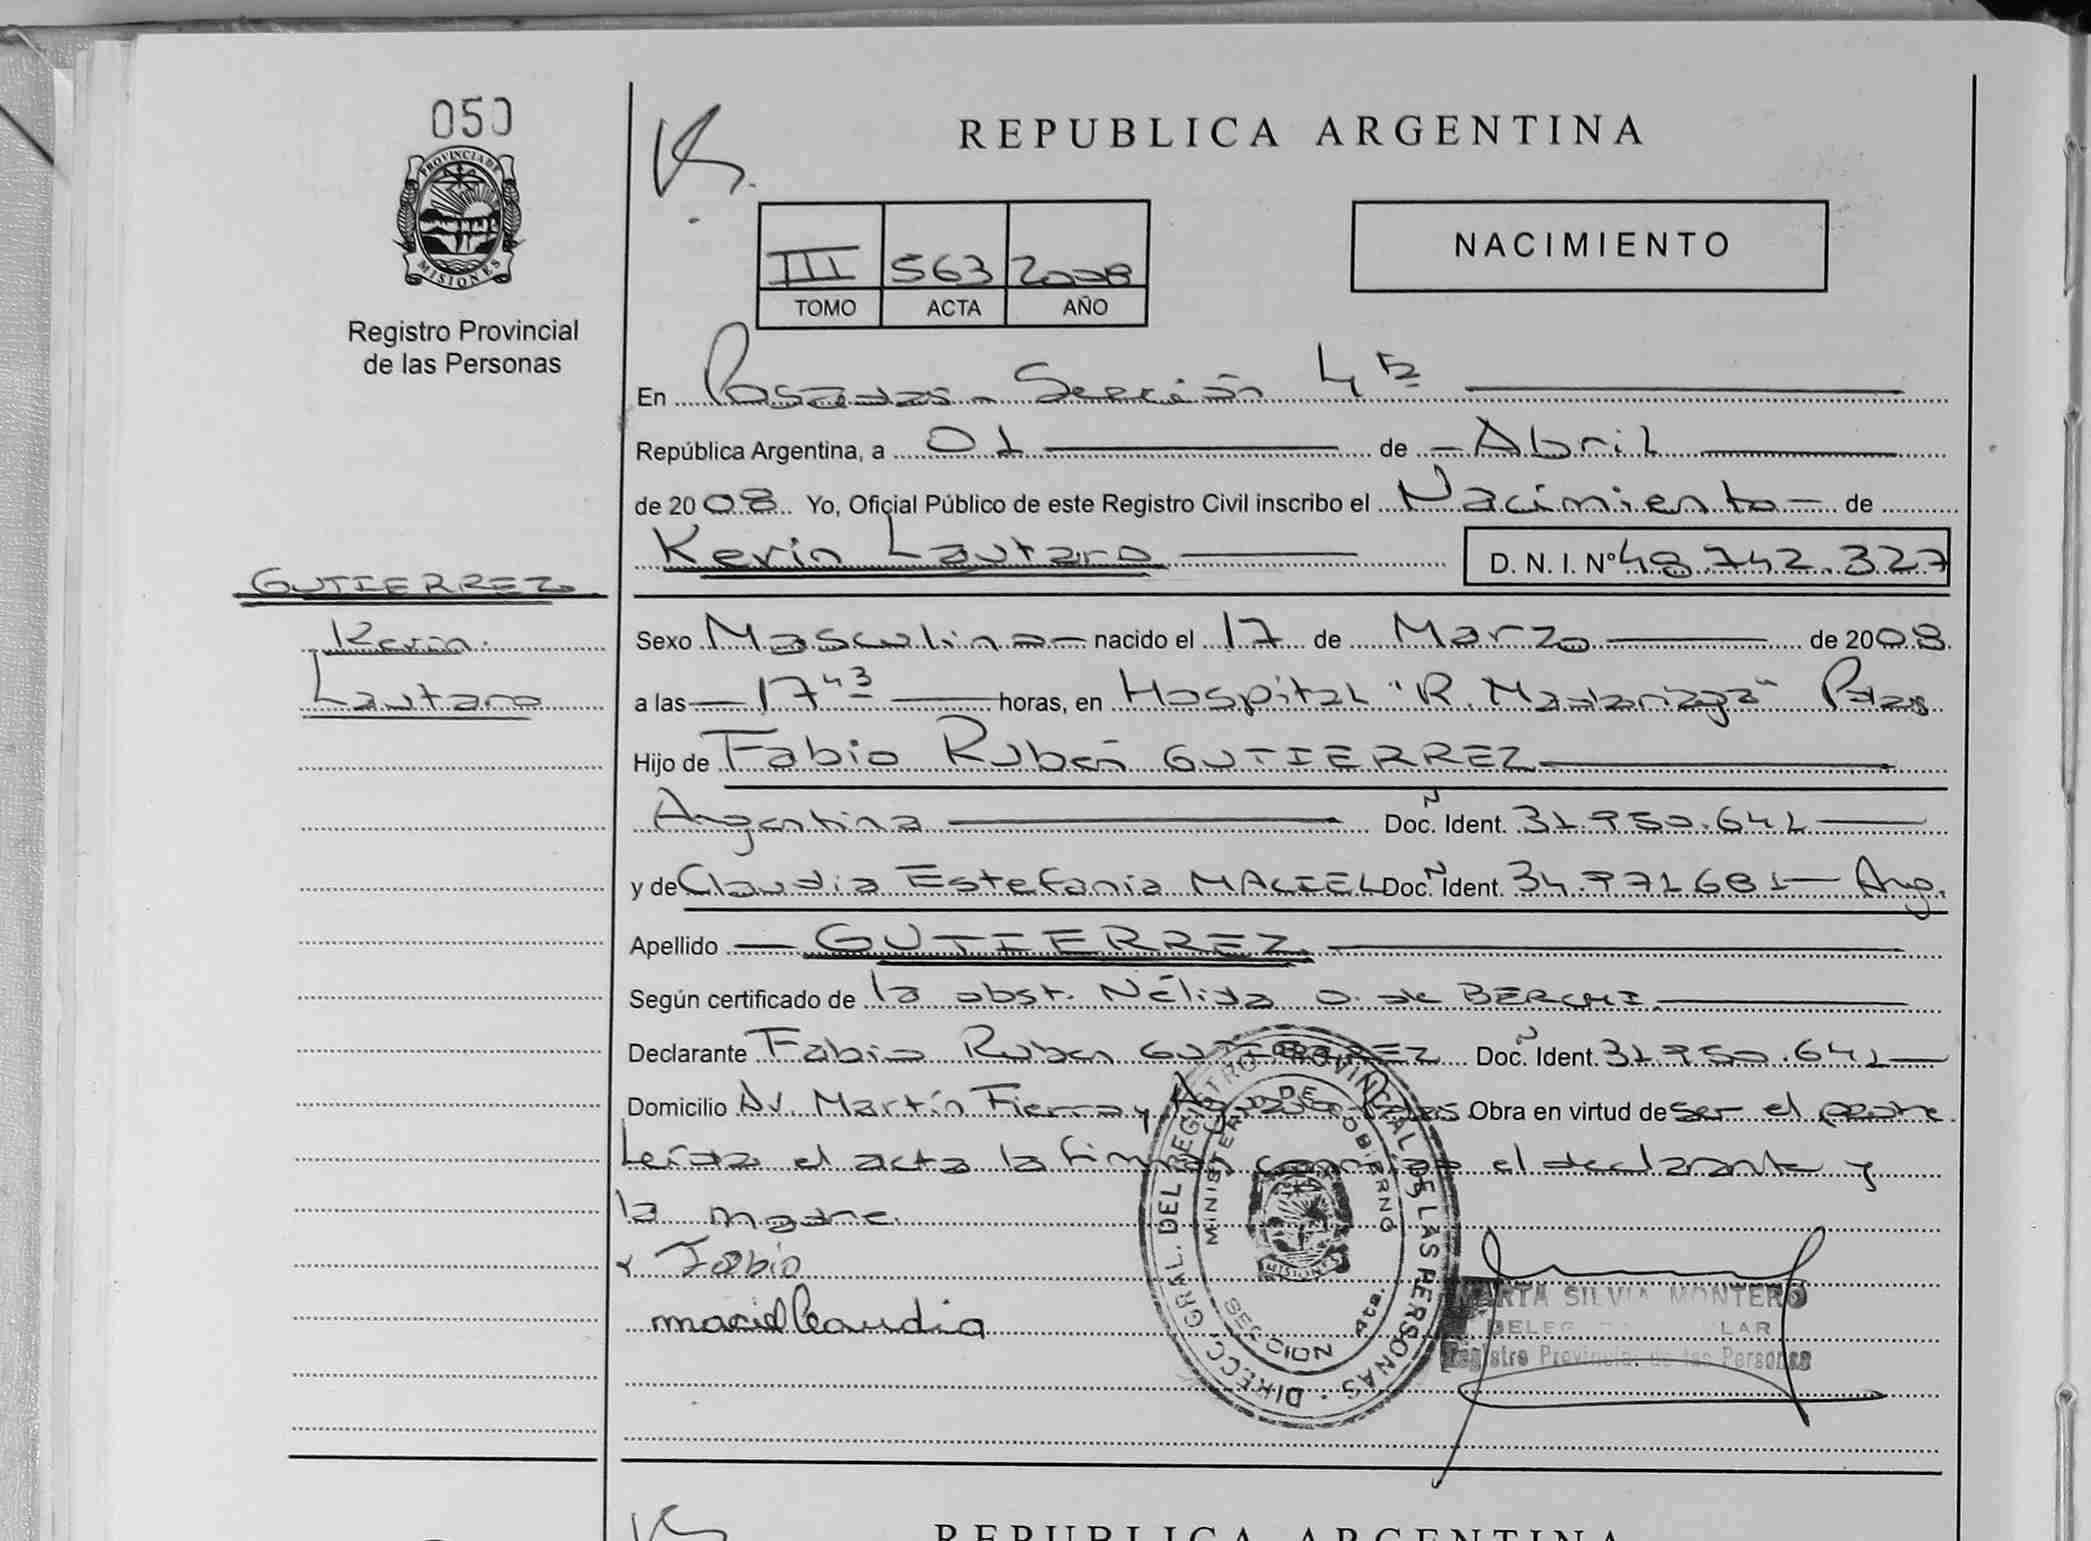 050
PROVINCIA DE
MISIONES
Registro Provincial
de las Personas
REPUBLICA ARGENTINA
III 563 2008
TOMO ACTA AÑO
NACIMIENTO
En Posadas - Sección 4ta
República Argentina, a 01 de Abril
de 2008 Yo, Oficial Público de este Registro Civil inscribo el Nacimiento de
Kevin Lautaro D. N. I. Nº 48.742.327
GUTIERREZ
Kevin
Lautaro
Sexo Masculino nacido el 17 de Marzo de 2008
a las 17 43 horas, en Hospital "R. Madariaga" Pdas
Hijo de Fabio Rubén GUTIERREZ
Argentina Doc. Ident. 31.950.641
y de Claudia Estefania MACIEL Doc. Ident. 34.971681 Arg.
Apellido GUTIERREZ
Según certificado de la obst. Nélida O. de
Declarante Fabio Ruben GUTIERREZ Doc. Ident. 31950.641
Domicilio Av. Martín Fierro y Pdas Obra en virtud de ser el padre.
Leída el acta la firman conmigo el declarante y
la madre.
x Fabio
maciel Claudia
DIRECC. GRAL. DEL REGISTRO PROVINCIAL DE LAS PERSONAS
MINISTERIO DE GOBIERNO
MISIONES
SECCION 4ta.
MARTA SILVIA MONTERO
Registro Provincial de las Personas
REPUBLICA ARGENTINA